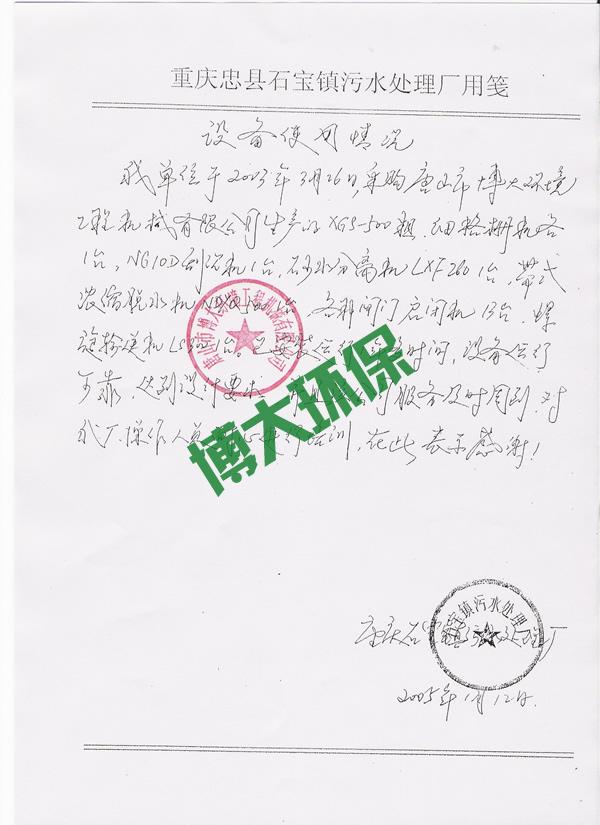 重庆忠县石宝镇污水处理厂用笺
设备使用情况
我单位于2003年3月26日,采购唐山市博大环境
工程机械有限公司生产的XGS-500粗、细格栅机各
1台,NG10D刮泥机1台,砂水分离机LXF260 1台,带式
浓缩脱水机 台 各种闸门启闭机13台,螺
旋输送机 1台, 时间,设备运行
可靠,达到设计要求 服务及时周到,对
我厂操作人员 进行培训,在此表示感谢!
唐山市博大环境工程机械有限公司
博大环保
重庆石宝
石宝镇污水处理厂
2005年1月12日